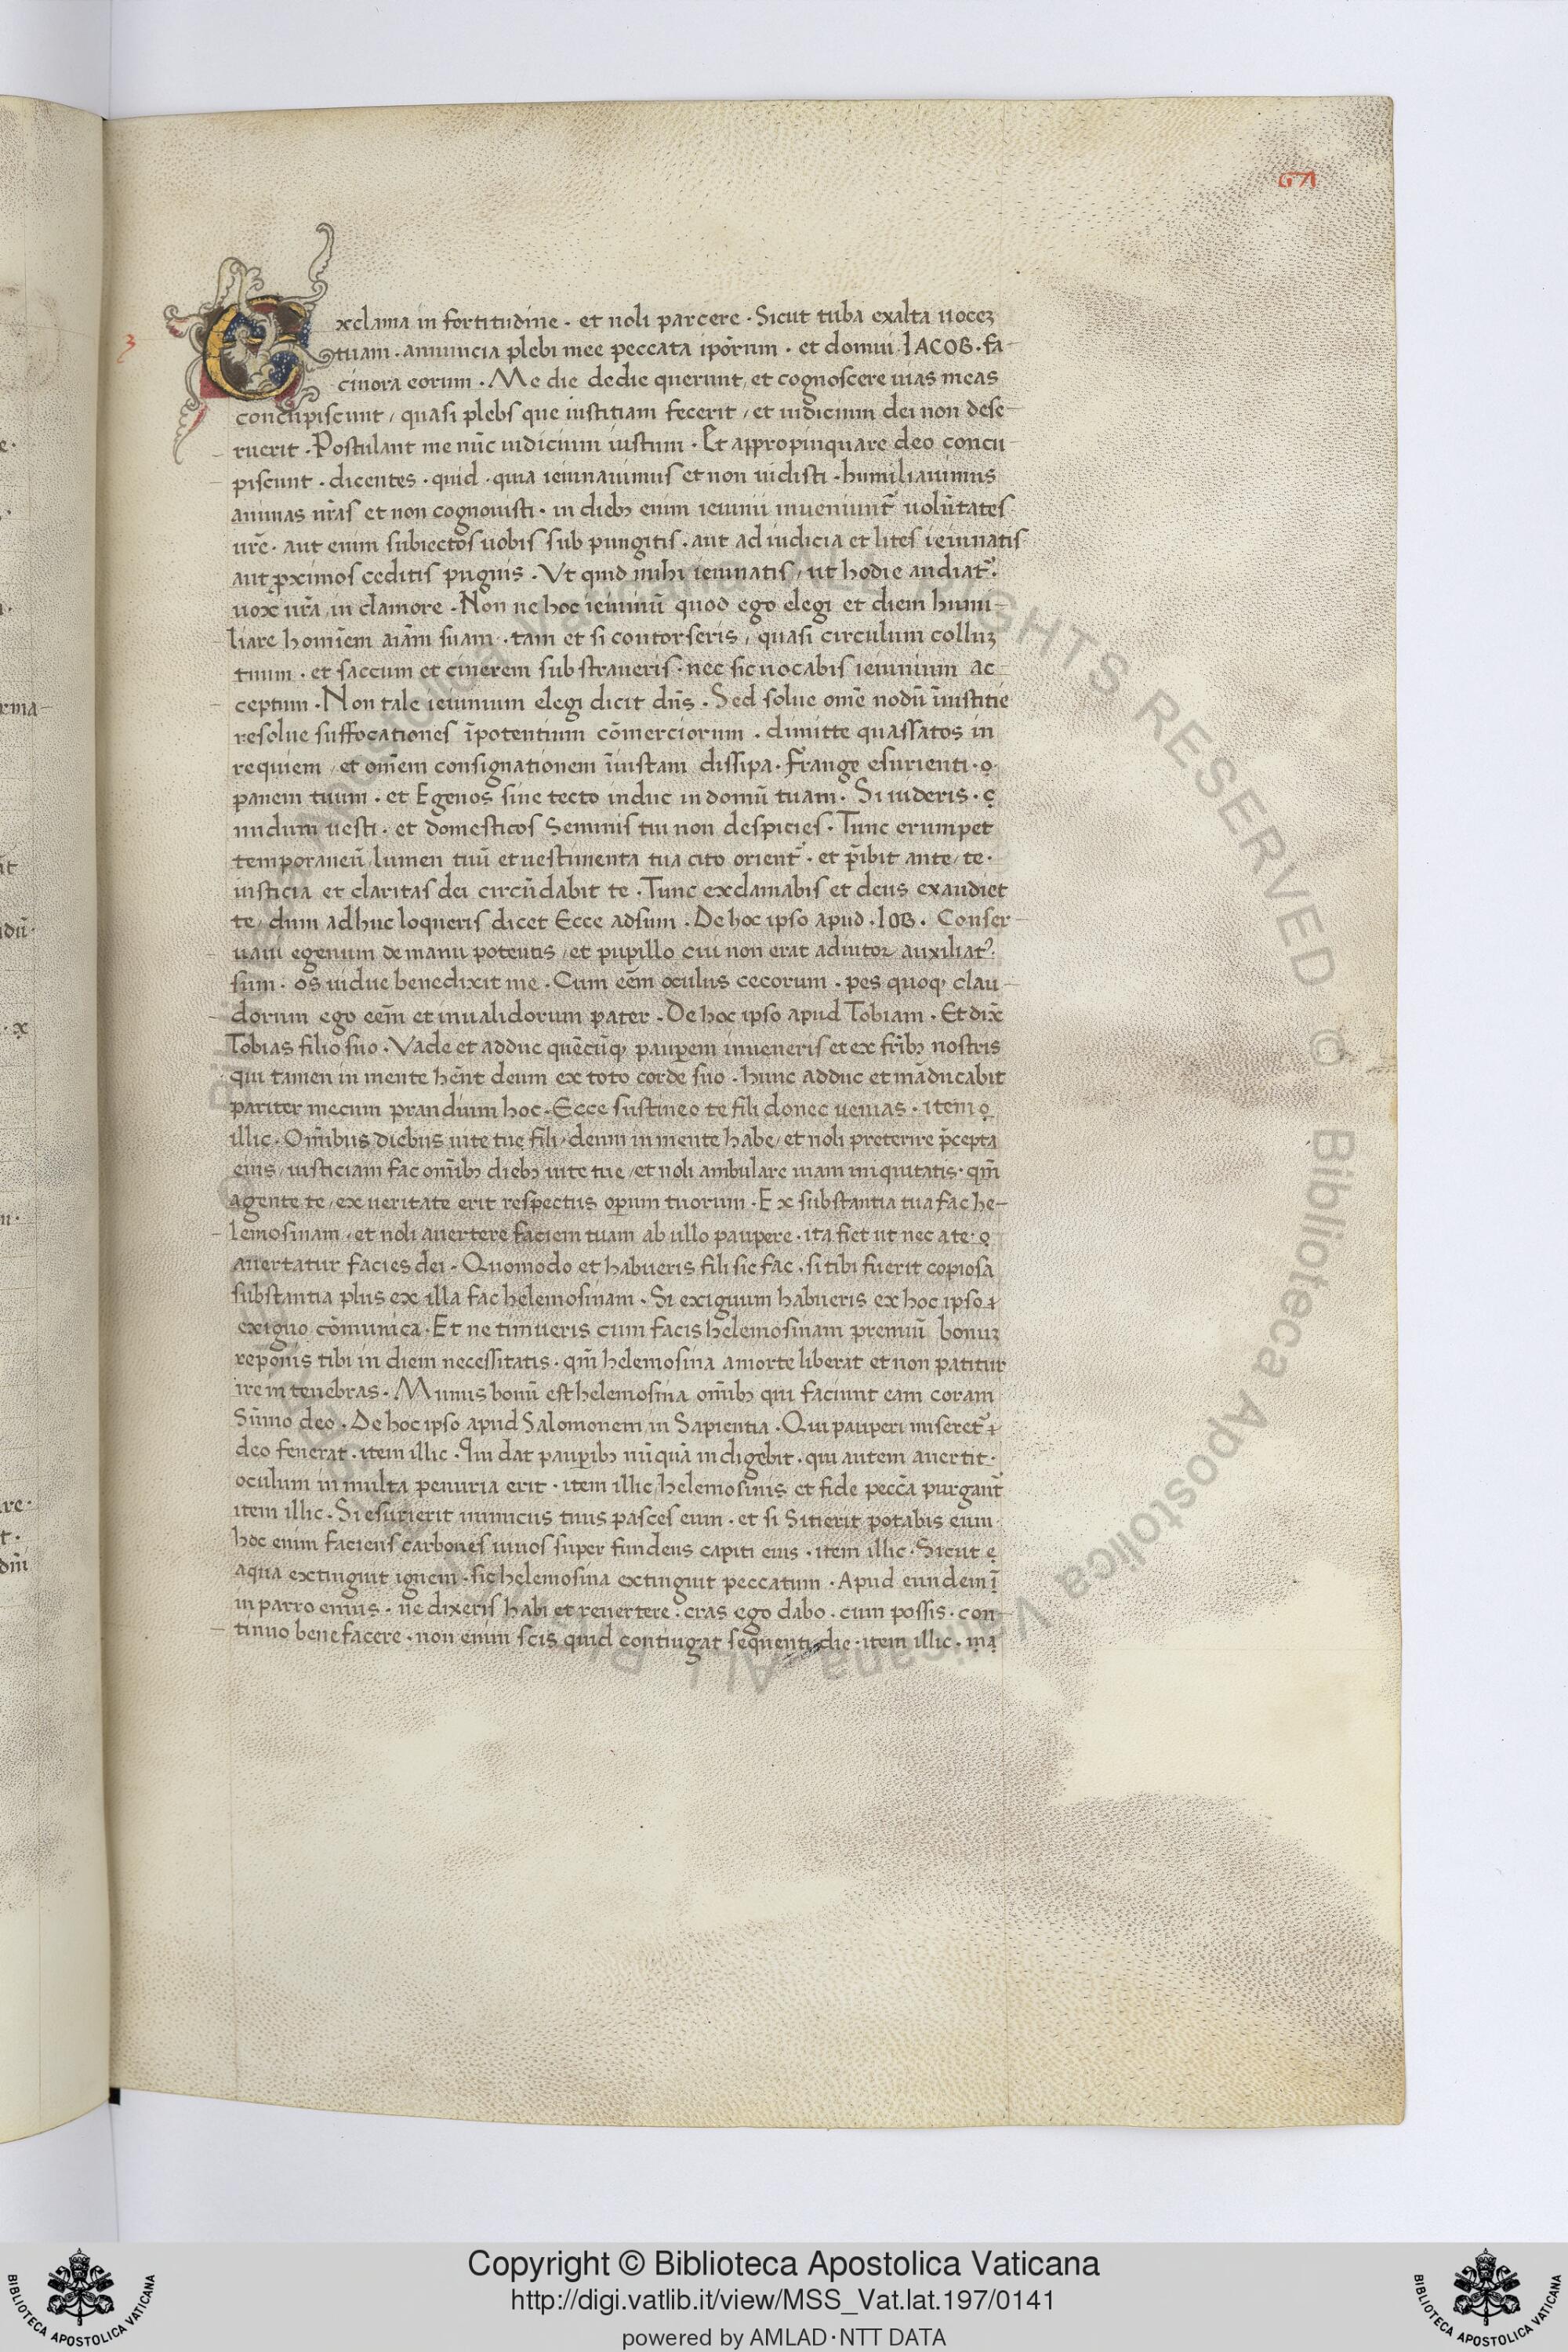 67
Exclama in fortitudine · et noli parcere · Sicut tuba exalta uoceʒ
tuam · annuncia plebi mee peccata ipõrum · et domui IACOB · fa-
cinora eorum · Me die dedie querunt, et cognoscere uias meas
concupiscunt, quasi plebs que iustitiam fecerit, et iudicium dei non dese-
ruerit · Postulant me nũc iudicium iustum · Et appropinquare deo concu-
piscunt · dicentes · quid · quia ieiunauimus et non uidisti · humiliauimus
animas nr̃as et non cognouisti · in diebꝫ enim ieiunii inueniunt᷑ uolũtates
ur̃e · aut enim subiectos uobis sub pungitis · aut ad iudicia et lites ieiunatis
aut ꝓximos ceditis pugnis · Vt quid mihi ieiunatis, ut hodie audiat᷑
uox ur̃a in clamore · Non ne hoc ieiuniũ quod ego elegi et diem humi-
liare homĩem aiãm suam · tam et si contorseris, quasi circulum colluʒ
tuum · et saccum et cinerem substraueris · nec sic uocabis ieiunium ac-
ceptum · Non tale ieiunium elegi dicit dñs · Sed solue omẽ nodũ ĩiustitie
resolue suffocationes ĩpotentium cõmerciorum · dimitte quassatos in
requiem, et omẽm consignationem ĩiustam dissipa · Frange esurienti ·
panem tuum · et Egenos sine tecto induc in domũ tuam · Si uideris ·
nudum uesti · et domesticos Seminis tui non despicies · Tunc erumpet
temporaneũ lumen tuũ et uestimenta tua cito orient᷑ · et p̃ibit ante, te ·
iusticia et claritas dei circũdabit te · Tunc exclamabis et deus exaudiet
te, dum adhuc loqueris dicet Ecce adsum · De hoc ipso apud · IOB · Conser-
uaui egenum de manu potentis, et pupillo cui non erat adiutor auxiliat᷑
sum · os uidue benedixit me · Cum eẽm oculus cecorum · pes quoqꝫ clau-
dorum ego eẽm et inualidorum pater · De hoc ipso apud Tobiam · Et dix̃
Tobias filio suo · Vade et adduc quẽcũqꝫ pauꝑem inueneris et ex fr̃ibꝫ nostris
qui tamen in mente hẽnt deum ex toto corde suo · hunc adduc et mãducabit
pariter mecum prandium hoc · Ecce sustineo te fili donec uenias · item
illic · Om̃ibus diebus uite tue fili, deum in mente habe, et noli preterire p̃cepta
eius, iusticiam fac om̃ibꝫ diebꝫ uite tue, et noli ambulare uiam iniquitatis · qm̃
agente te, ex ueritate erit respectus oꝑum tuorum · Ex substantia tua fac he-
lemosinam, et noli auertere faciem tuam ab ullo paupere · ita fiet ut nec a te ·
auertatur facies dei · Quomodo et habueris fili sic fac, si tibi fuerit copiosa
substantia plus ex illa fac helemosinam · Si exiguum habueris ex hoc ipso
exiguo cõmunica · Et ne timueris cum facis helemosinam premiũ bonuʒ
reponis tibi in diem necessitatis · qm̃ helemosina a morte liberat et non patitur
ire in tenebras · Munus bonũ est helemosina om̃ibꝫ qui faciunt eam coram
Sũmo deo · De hoc ipso apud Salomonem in Sapientia · Qui pauperi miseret᷑
deo fenerat · item illic · Qui dat pauꝑibꝫ nũquã indigebit · qui autem auertit ·
oculum in multa penuria erit · item illic, helemosinis et fide pecc̃a purgant᷑
item illic · Si esurierit inimicus tuus pasces eum · et si Sitierit potabis eum ·
hoc enim faciens carbones uiuos super fundens capiti eius · item illic · Sicut
aqua extinguit ignem · sic helemosina extinguit peccatum · Apud eundem
in parroemiis · ne dixeris habi et reuertere · cras ego dabo · cum possis · con-
tinuo bene facere · non enim scis quid contingat sequenti die · item illic ·
Copyright © Biblioteca Apostolica Vaticana
http://digi.vatlib.it/view/MSS_Vat.lat.197/0141
powered by AMLAD·NTT DATA
BIBLIOTECA APOSTOLICA VATICANA
BIBLIOTECA APOSTOLICA VATICANA